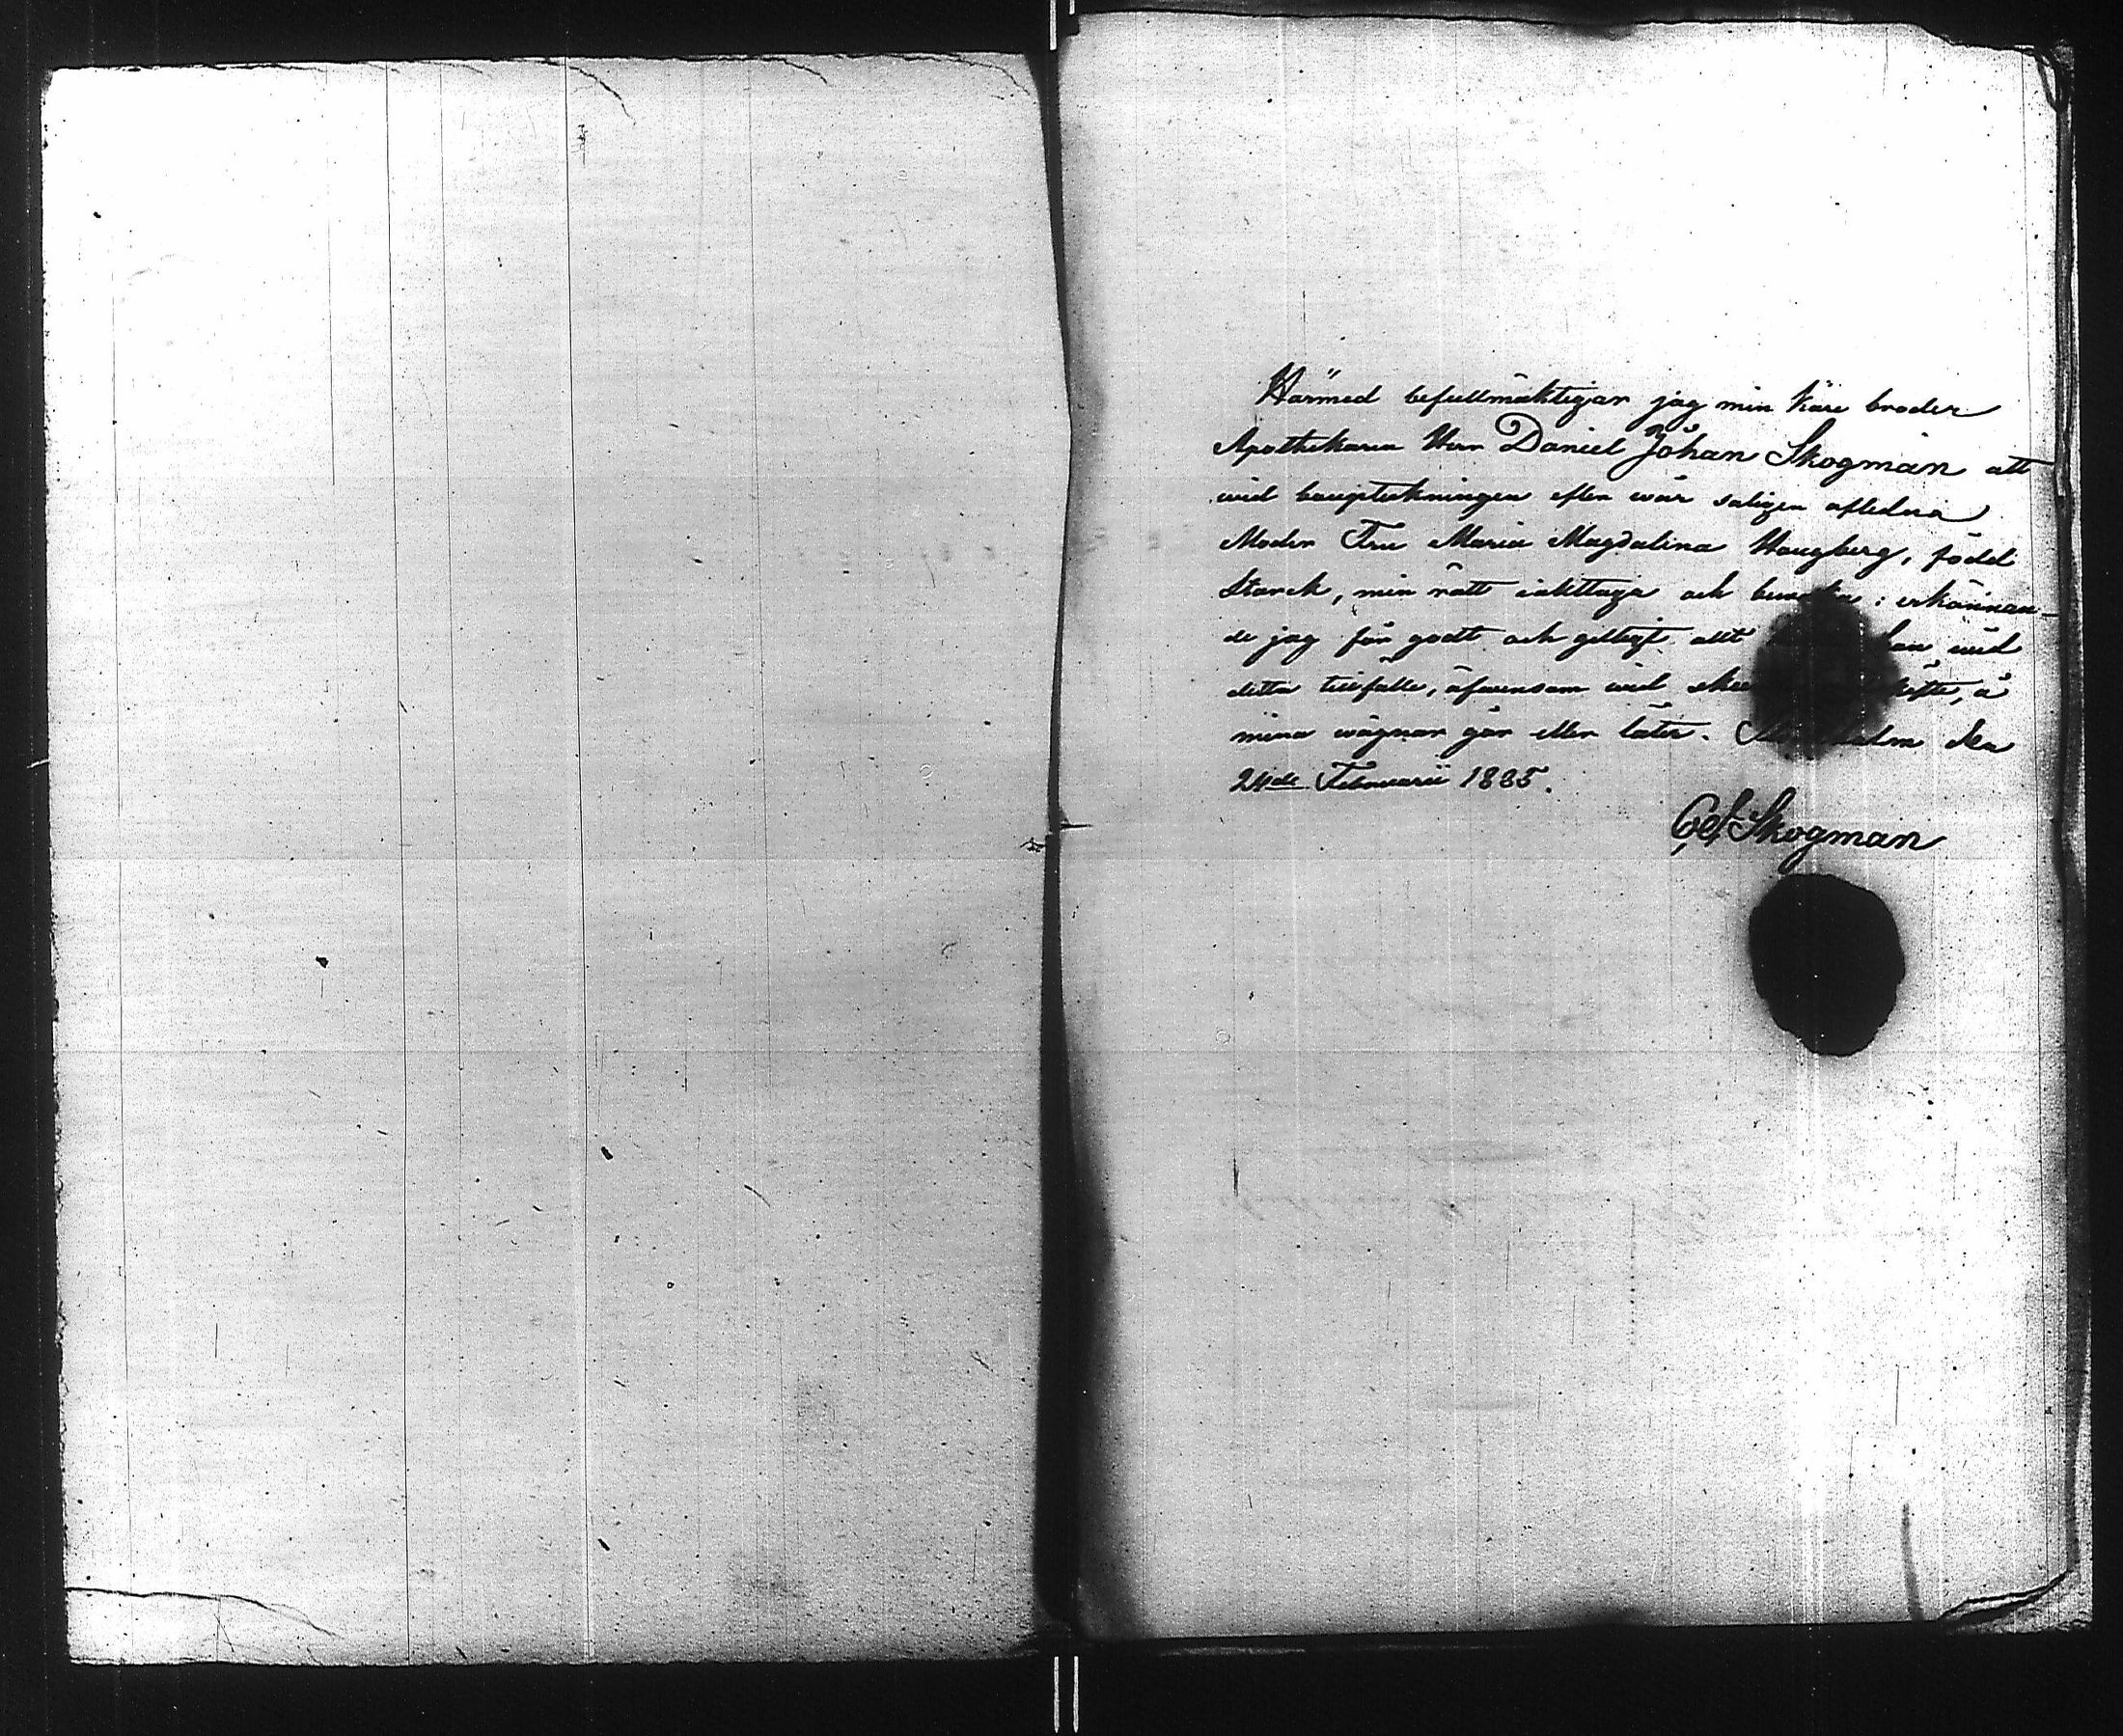 Härmed befullmäktigar jag min Käre broder
Apothekaren Herr Daniel Johan Skogman att
wid bouptekningen efter wår saligen aflidna
Moder Fru Maria Magdalena Haugberg, född
Starck, min rätt iakttaga och bevaka: erkännan-
de jag för godt och giltigt allt han wid
detta tillfälle, äfwensom wid å
mina wägnar gör eller låter. den
24de Februarii 1835.
Skogman